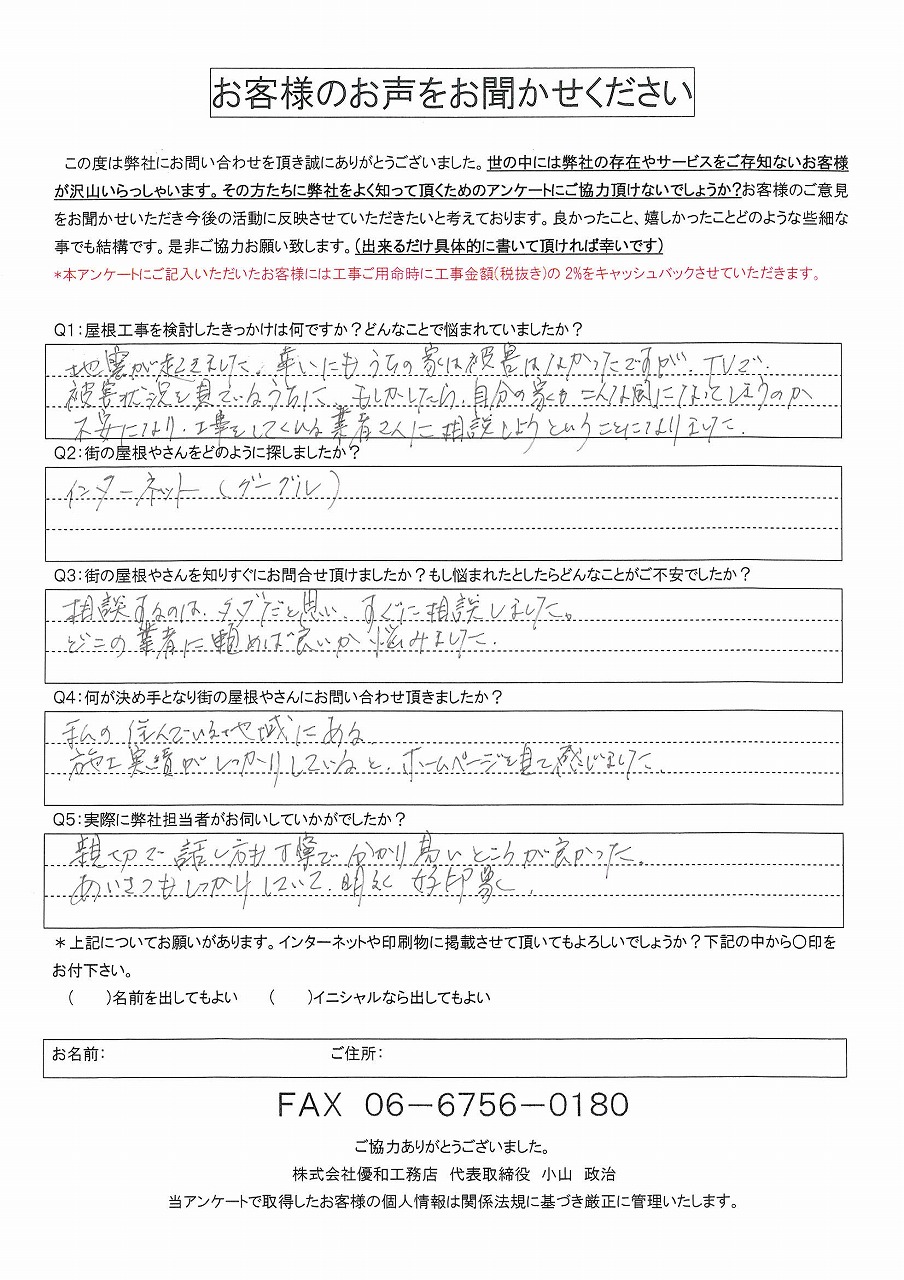 お客様のお声をお聞かせください
この度は弊社にお問い合わせを頂き誠にありがとうございました。世の中には弊社の存在やサービスをご存知ないお客様
が沢山いらっしゃいます。その方たちに弊社をよく知って頂くためのアンケートにご協力頂けないでしょうか?お客様のご意見
をお聞かせいただき今後の活動に反映させていただきたいと考えております。良かったこと、嬉しかったことどのような些細な
事でも結構です。是非ご協力お願い致します。(出来るだけ具体的に書いて頂ければ幸いです)
*本アンケートにご記入いただいたお客様には工事ご用命時に工事金額(税抜き)の 2%をキャッシュバックさせていただきます。
Q1:屋根工事を検討したきっかけは何ですか?どんなことで悩まれていましたか?
地震が起きました。幸いにもうちの家は被害はなかったですが、TVで
被害状況を見ているうちに、もしかしたら、自分の家もこんな風になってしまうのか
不安になり、工事をしてくれる業者さんに相談しようということになりました。
Q2:街の屋根やさんをどのように探しましたか?
インターネット(グーグル)
Q3:街の屋根やさんを知りすぐにお問合せ頂けましたか?もし悩まれたとしたらどんなことがご不安でしたか?
相談するのは、タダだと思い、すぐに相談しました。
どこの業者に頼めば良いか悩みました。
Q4:何が決め手となり街の屋根やさんにお問い合わせ頂きましたか?
私の住んでいる地域にある
施工実績がしっかりしていると、ホームページを見て感じました。
Q5:実際に弊社担当者がお伺いしていかがでしたか?
親切で話し方も丁寧で分かり易いところが良かった。
あいさつもしっかりしていて、明るく好印象。
*上記についてお願いがあります。インターネットや印刷物に掲載させて頂いてもよろしいでしょうか?下記の中から〇印を
お付下さい。
( )名前を出してもよい ( )イニシャルなら出してもよい
お名前: ご住所:
FAX 06-6756-0180
ご協力ありがとうございました。
株式会社優和工務店 代表取締役 小山 政治
当アンケートで取得したお客様の個人情報は関係法規に基づき厳正に管理いたします。